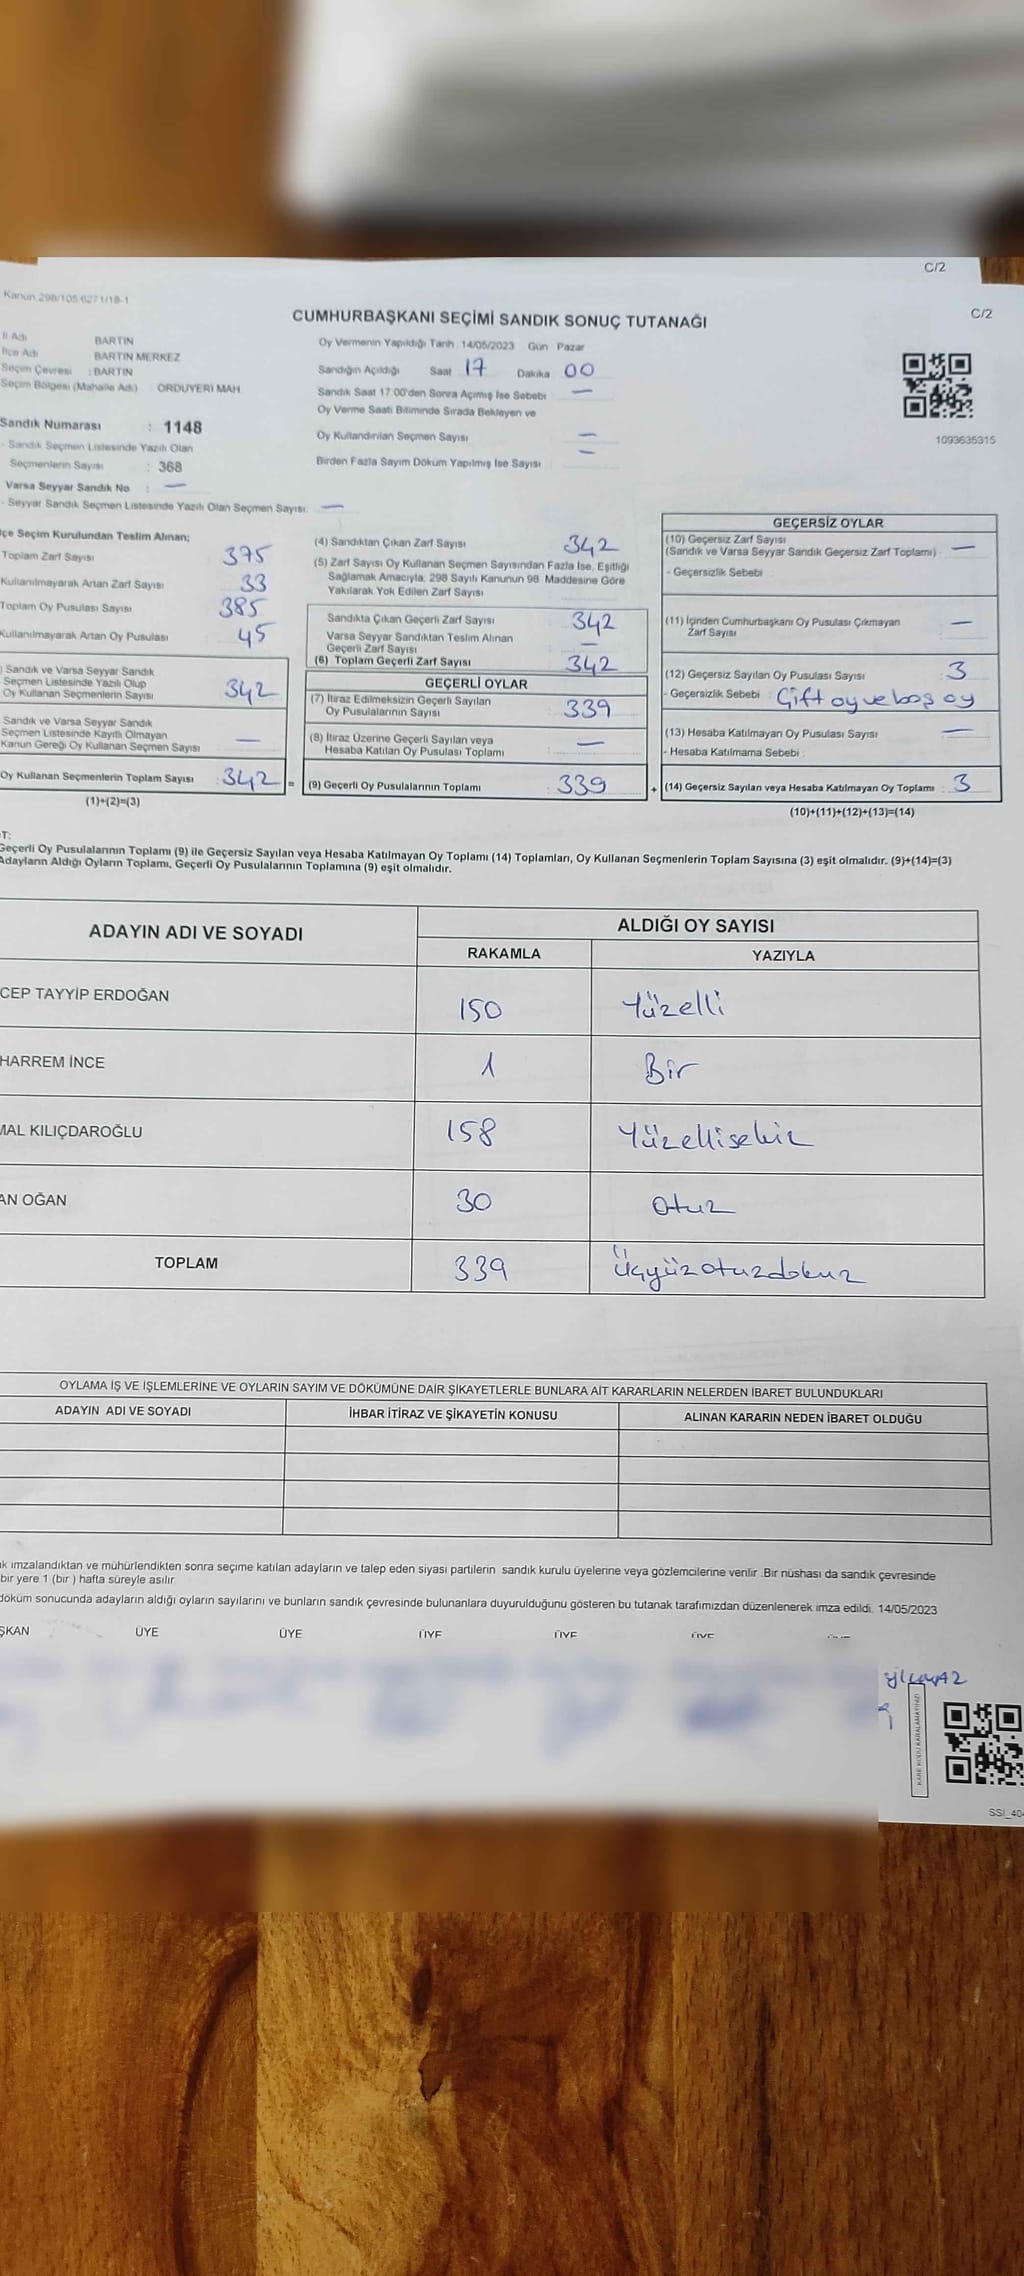 C/2
C/2
Kanun 298/105 6271/18-1
CUMHURBAŞKANI SEÇİMİ SANDIK SONUÇ TUTANAĞI
İl Adı BARTIN
İlçe Adı BARTIN MERKEZ
Seçim Çevresi : BARTIN
Seçim Bölgesi (Mahalle Adı) : ORDUYERİ MAH
Sandık Numarası : 1148
- Sandık Seçmen Listesinde Yazılı Olan
Seçmenlerin Sayısı : 368
Varsa Seyyar Sandık No : —
- Seyyar Sandık Seçmen Listesinde Yazılı Olan Seçmen Sayısı: —
Oy Vermenin Yapıldığı Tarih : 14/05/2023 Gün Pazar
Sandığın Açıldığı Saat 17 Dakika 00
Sandık Saat 17.00'den Sonra Açımış İse Sebebi —
Oy Verme Saati Bitiminde Sırada Bekleyen ve
Oy Kullandırılan Seçmen Sayısı —
Birden Fazla Sayım Döküm Yapılmış İse Sayısı —
1093635315
çe Seçim Kurulundan Teslim Alınan;
Toplam Zarf Sayısı 375
Kullanılmayarak Artan Zarf Sayısı 33
Toplam Oy Pusulası Sayısı 385
Kullanılmayarak Artan Oy Pusulası 45
) Sandık ve Varsa Seyyar Sandık
Seçmen Listesinde Yazılı Olup
Oy Kullanan Seçmenlerin Sayısı 342
Sandık ve Varsa Seyyar Sandık
Seçmen Listesinde Kayıtlı Olmayan
Kanun Gereği Oy Kullanan Seçmen Sayısı —
Oy Kullanan Seçmenlerin Toplam Sayısı : 342 =
(1)+(2)=(3)
(4) Sandıktan Çıkan Zarf Sayısı 342
(5) Zarf Sayısı Oy Kullanan Seçmen Sayısından Fazla İse, Eşitliği
Sağlamak Amacıyla, 298 Sayılı Kanunun 98. Maddesine Göre
Yakılarak Yok Edilen Zarf Sayısı
Sandıkta Çıkan Geçerli Zarf Sayısı 342
Varsa Seyyar Sandıktan Teslim Alınan
Geçerli Zarf Sayısı —
(6) Toplam Geçerli Zarf Sayısı 342
GEÇERLİ OYLAR
(7) İtiraz Edilmeksizin Geçerli Sayılan
Oy Pusulalarının Sayısı 339
(8) İtiraz Üzerine Geçerli Sayılan veya
Hesaba Katılan Oy Pusulası Toplamı —
(9) Geçerli Oy Pusulalarının Toplamı : 339 +
GEÇERSİZ OYLAR
(10) Geçersiz Zarf Sayısı
(Sandık ve Varsa Seyyar Sandık Geçersiz Zarf Toplamı) : —
- Geçersizlik Sebebi :
(11) İçinden Cumhurbaşkanı Oy Pusulası Çıkmayan
Zarf Sayısı —
(12) Geçersiz Sayılan Oy Pusulası Sayısı : 3
- Geçersizlik Sebebi : Çift oy ve boş oy
(13) Hesaba Katılmayan Oy Pusulası Sayısı : —
- Hesaba Katılmama Sebebi :
(14) Geçersiz Sayılan veya Hesaba Katılmayan Oy Toplamı : 3
(10)+(11)+(12)+(13)=(14)
T:
Geçerli Oy Pusulalarının Toplamı (9) ile Geçersiz Sayılan veya Hesaba Katılmayan Oy Toplamı (14) Toplamları, Oy Kullanan Seçmenlerin Toplam Sayısına (3) eşit olmalıdır. (9)+(14)=(3)
Adayların Aldığı Oyların Toplamı, Geçerli Oy Pusulalarının Toplamına (9) eşit olmalıdır.
ADAYIN ADI VE SOYADI ALDIĞI OY SAYISI
RAKAMLA YAZIYLA
CEP TAYYİP ERDOĞAN 150 Yüzelli
HARREM İNCE 1 Bir
MAL KILIÇDAROĞLU 158 Yüzellisekiz
AN OĞAN 30 Otuz
TOPLAM 339 Üçyüzotuzdokuz
OYLAMA İŞ VE İŞLEMLERİNE VE OYLARIN SAYIM VE DÖKÜMÜNE DAİR ŞİKAYETLERLE BUNLARA AİT KARARLARIN NELERDEN İBARET BULUNDUKLARI
ADAYIN ADI VE SOYADI İHBAR İTİRAZ VE ŞİKAYETİN KONUSU ALINAN KARARIN NEDEN İBARET OLDUĞU
k imzalandıktan ve mühürlendikten sonra seçime katılan adayların ve talep eden siyasi partilerin sandık kurulu üyelerine veya gözlemcilerine verilir .Bir nüshası da sandık çevresinde
bir yere 1 (bir ) hafta süreyle asılır.
döküm sonucunda adayların aldığı oyların sayılarını ve bunların sandık çevresinde bulunanlara duyurulduğunu gösteren bu tutanak tarafımızdan düzenlenerek imza edildi. 14/05/2023
ŞKAN ÜYE ÜYE ÜYE ÜYE ÜYE
KARE KODU KARALAMAYINIZ!
SSI_404